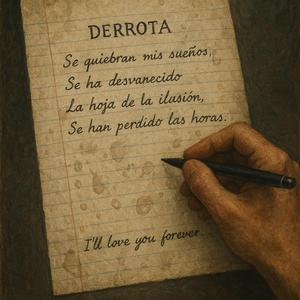 DERROTA
Se quiebran mis sueños,
Se ha desvanecido
La hoja de la ilusión,
Se han perdido las horas.
I'll love you forever.